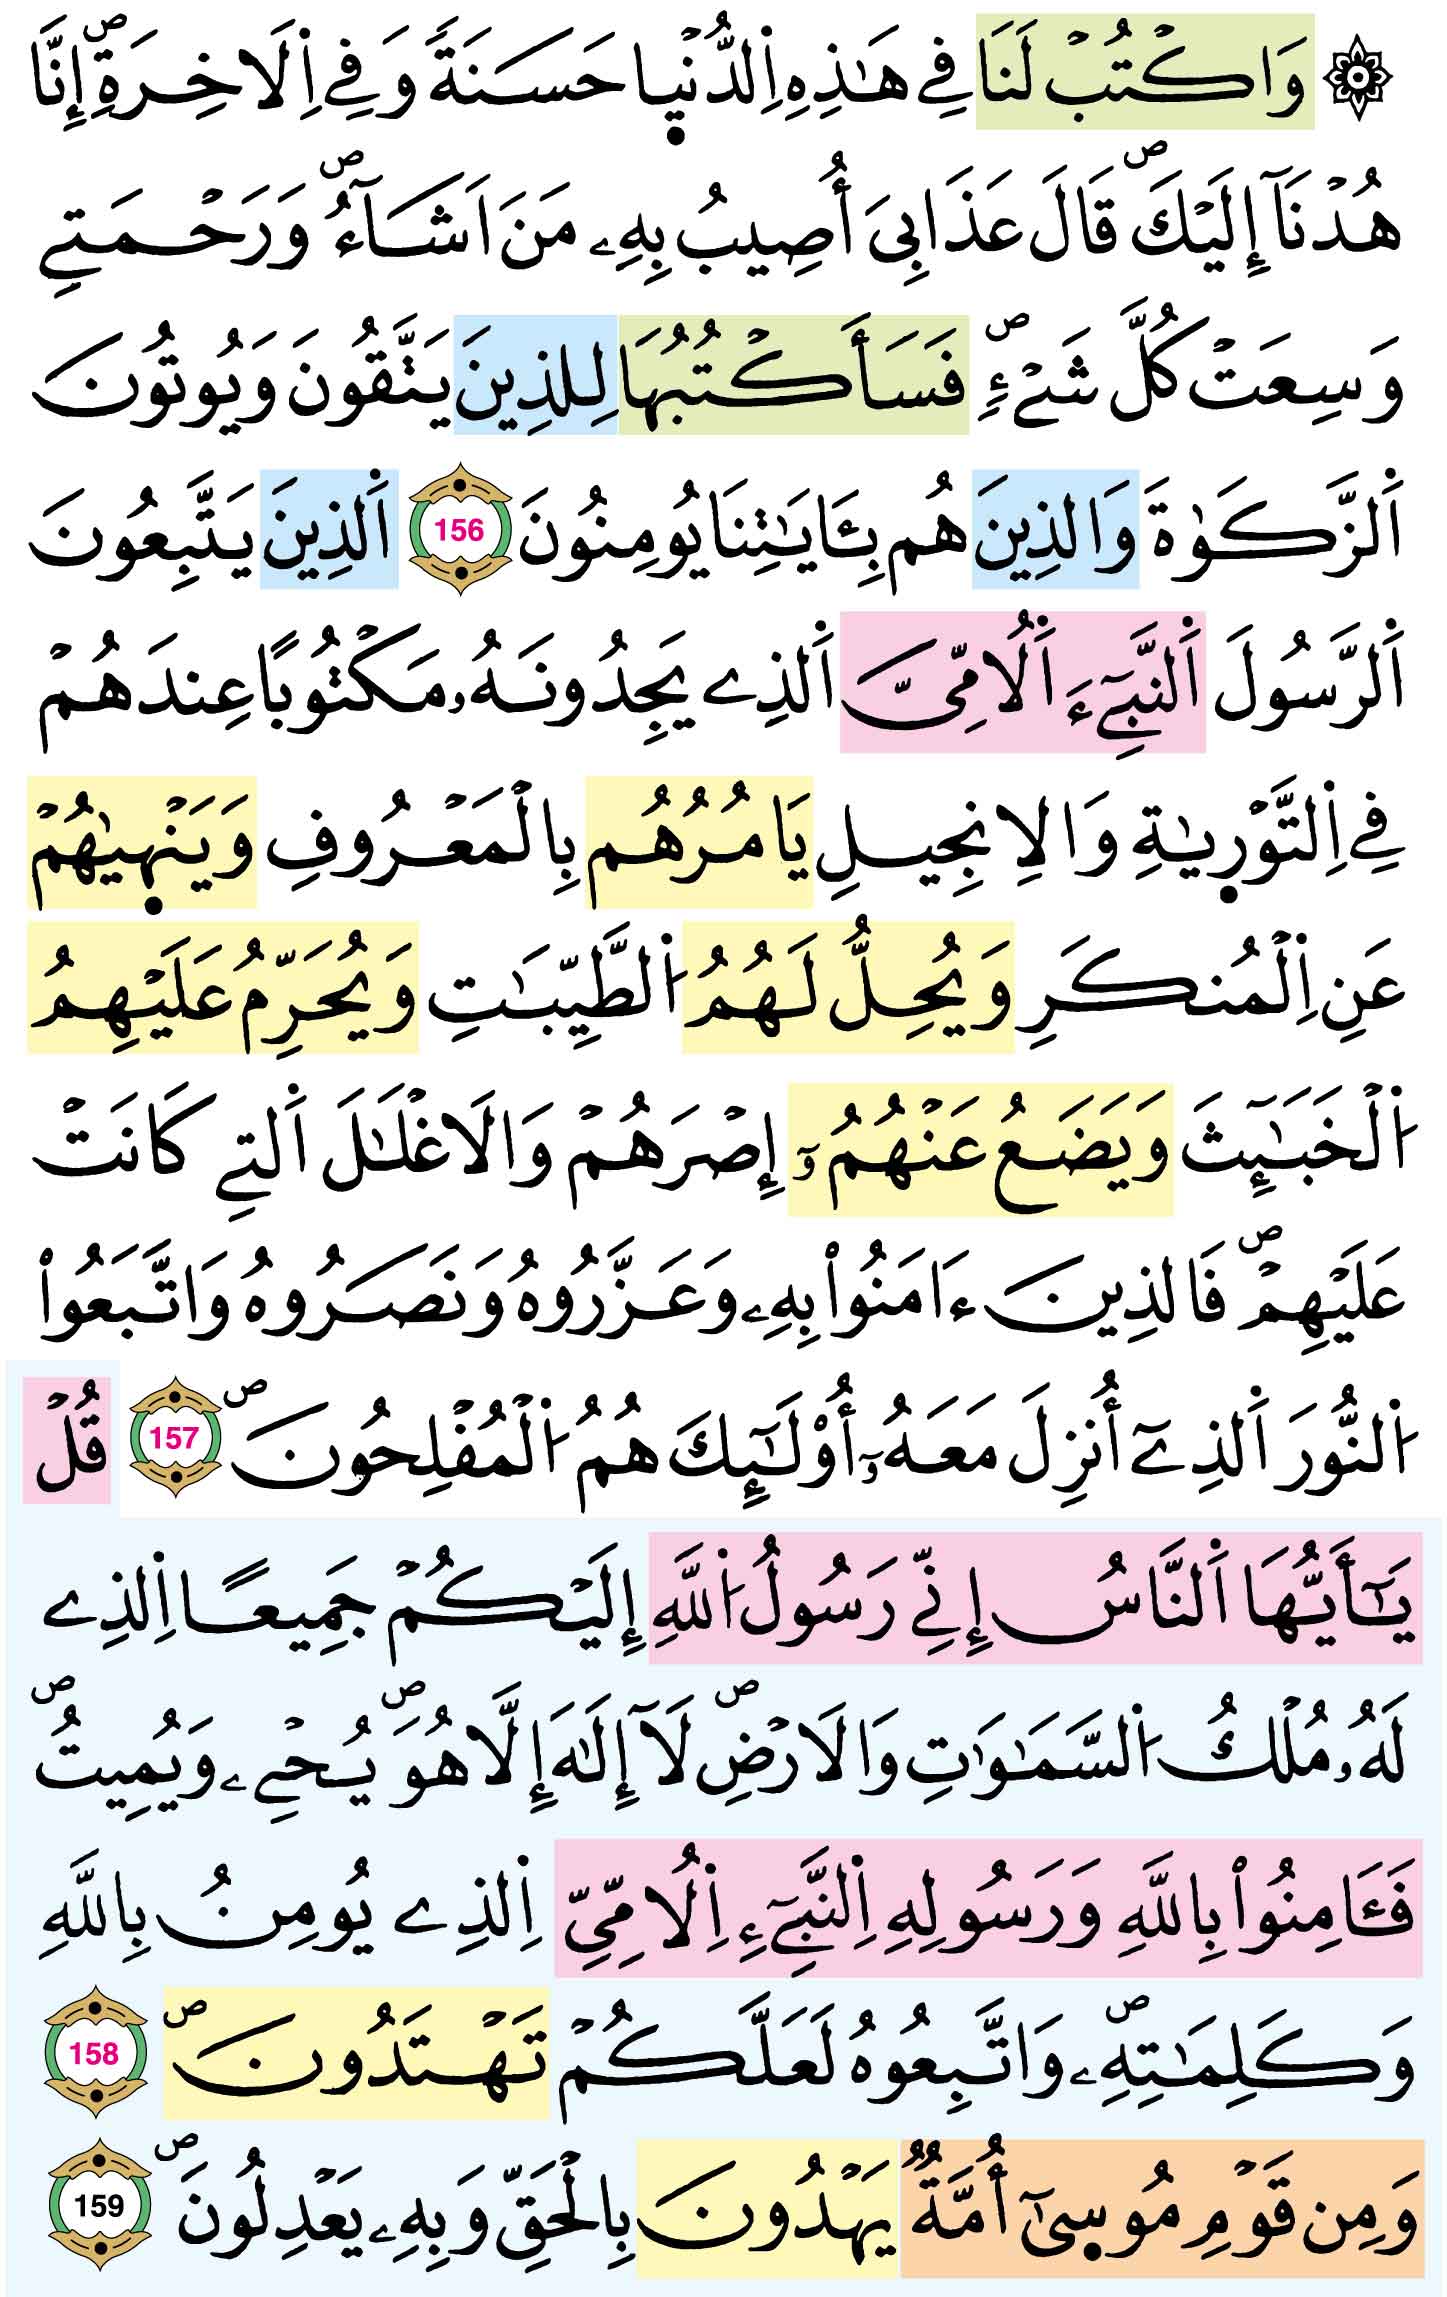 ۞ وَاكْتُبْ لَنَا فِي هَٰذِهِ اِ۬لدُّنْي۪ا حَسَنَةٗ وَفِي اِ۬لَاخِرَةِۖ إِنَّا
هُدْنَآ إِلَيْكَۖ قَالَ عَذَابِيَ أُصِيبُ بِهِۦ مَنَ اَشَآءُۖ وَرَحْمَتِے
وَسِعَتْ كُلَّ شَےْءٖۖ فَسَأَكْتُبُهَا لِلذِينَ يَتَّقُونَ وَيُوتُونَ
اَ۬لزَّكَوٰةَ وَالذِينَ هُم بِـَٔايَٰتِنَا يُومِنُونَ 156 اَ۬لذِينَ يَتَّبِعُونَ
اَ۬لرَّسُولَ اَ۬لنَّبِےٓءَ اَ۬لُامِّيَّ اَ۬لذِے يَجِدُونَهُۥ مَكْتُوباً عِندَهُمْ
فِي اِ۬لتَّوْر۪يٰةِ وَالِانجِيلِ يَامُرُهُم بِالْمَعْرُوفِ وَيَنْه۪يٰهُمْ
عَنِ اِ۬لْمُنكَرِ وَيُحِلُّ لَهُمُ اُ۬لطَّيِّبَٰتِ وَيُحَرِّمُ عَلَيْهِمُ
اُ۬لْخَبَٰٓئِثَ وَيَضَعُ عَنْهُمُۥٓ إِصْرَهُمْ وَالَاغْلَٰلَ اَ۬لتِے كَانَتْ
عَلَيْهِمْۖ فَالذِينَ ءَامَنُواْ بِهِۦ وَعَزَّرُوهُ وَنَصَرُوهُ وَاتَّبَعُواْ
اُ۬لنُّورَ اَ۬لذِےٓ أُنزِلَ مَعَهُۥٓ أُوْلَٰٓئِكَ هُمُ اُ۬لْمُفْلِحُونَۖ 157 قُلْ
يَٰٓأَيُّهَا اَ۬لنَّاسُ إِنِّے رَسُولُ اُ۬للَّهِ إِلَيْكُمْ جَمِيعاً اِ۬لذِے
لَهُۥ مُلْكُ اُ۬لسَّمَٰوَٰتِ وَالَارْضِۖ لَآ إِلَٰهَ إِلَّا هُوَۖ يُحْيِۦ وَيُمِيتُۖ
فَـَٔامِنُواْ بِاللَّهِ وَرَسُولِهِ اِ۬لنَّبِےٓءِ اِ۬لُامِّيِّ اِ۬لذِے يُومِنُ بِاللَّهِ
وَكَلِمَٰتِهِۦۖ وَاتَّبِعُوهُ لَعَلَّكُمْ تَهْتَدُونَۖ 158
وَمِن قَوْمِ مُوس۪ىٰٓ أُمَّةٞ يَهْدُونَ بِالْحَقِّ وَبِهِۦ يَعْدِلُونَۖ 159